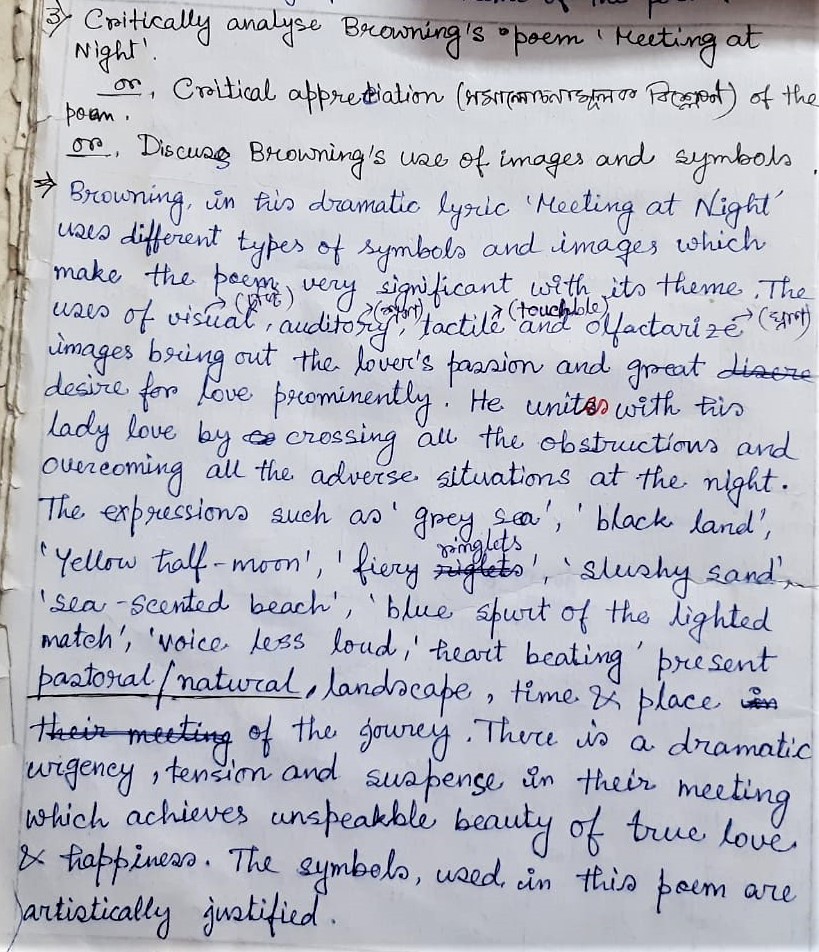 3) Critically analyse Browning's poem 'Meeting at
Night'.
or, Critical appreciation (সমালোচনামূলক বিশ্লেষণ) of the
poem.
or, Discuss Browning's use of images and symbols.
⇒ Browning, in his dramatic lyric 'Meeting at Night'
uses different types of symbols and images which
make the poem very significant with its theme. The
uses of visual → (দৃশ্য), auditory → , tactile → (touchable) and olfactarize → (ঘ্রাণ)
images bring out the lover's passion and great
desire for love prominently. He unites with his
lady love by crossing all the obstructions and
overcoming all the adverse situations at the night.
The expressions such as 'grey sea', 'black land',
'Yellow half-moon', 'fiery ringlets', 'slushy sand',
'sea-scented beach', 'blue spurt of the lighted
match', 'voice less loud,' heart beating' present
pastoral/natural, landscape, time & place
of the jourey. There is a dramatic
urigency, tension and suspense in their meeting
which achieves unspeakble beauty of true love
& happiness. The symbols, used in this poem are
artistically justified.